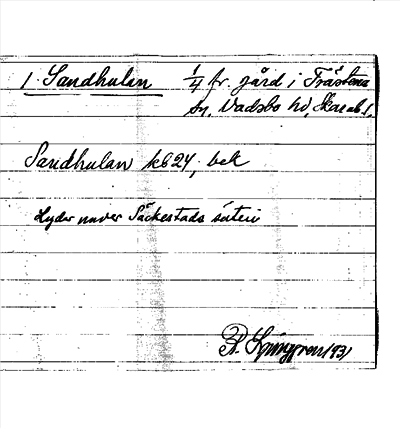 1. Sandhulan 1/4 fr. gård i Trästena
sn, Vadsbo hd, Skarab l.
Sandhulan kb 24, bek
Lyder under Säckestads säteri
R. Ljunggren 1931